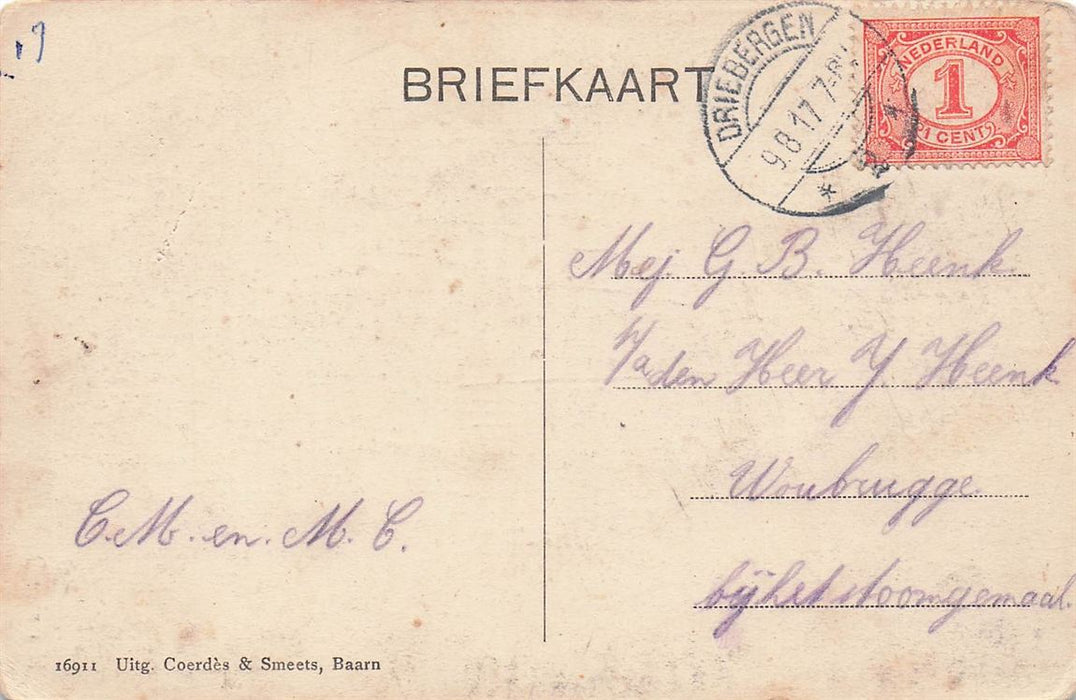 BRIEFKAART
DRIEBERGEN
9.8.17 7-8V
NEDERLAND
1
1 CENT
Mej G. B. Heenk.
p/a den Heer Y. Heenk
Woubrugge.
bij het stoomgemaal.
C. M. en. M. C.
16911 Uitg. Coerdès & Smeets, Baarn